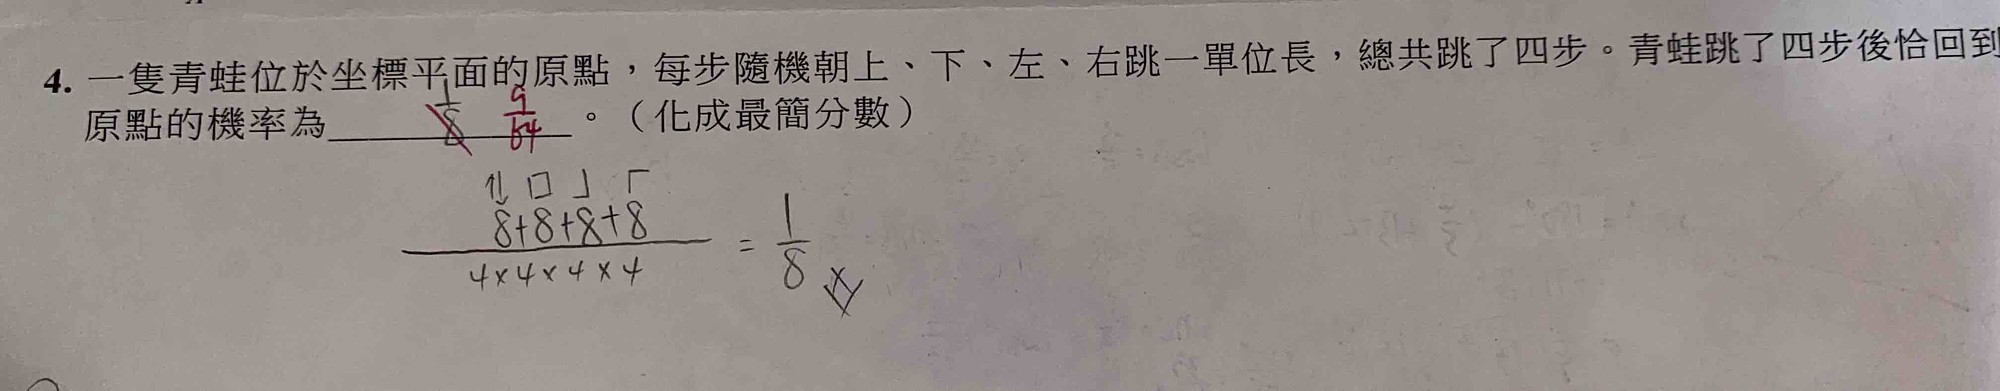 4. 一隻青蛙位於坐標平面的原點，每步隨機朝上、下、左、右跳一單位長，總共跳了四步。青蛙跳了四步後恰回到
原點的機率為 1/8 9/64 。（化成最簡分數）
8+8+8+8
4×4×4×4
= 1/8